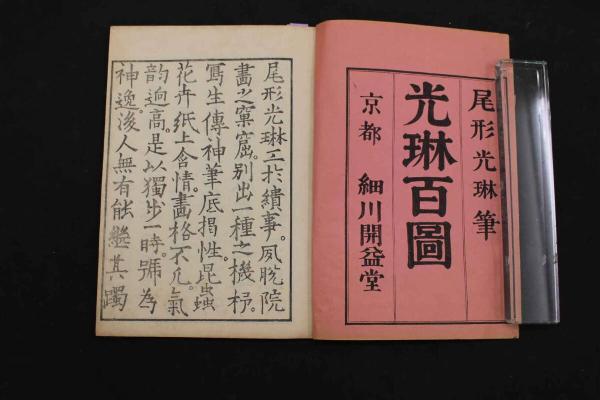 尾形光琳筆
光琳百圖
京都 細川開益堂
尾形光琳工於繢事。夙脱院
畫之窠窟。別出一種之機杼。
寫生傳神筆底揭性昆蟲
花卉紙上含情。畫格不凡。氣
韵逈高。是以獨步一時。號為
神逸。後人無有能繼其躅